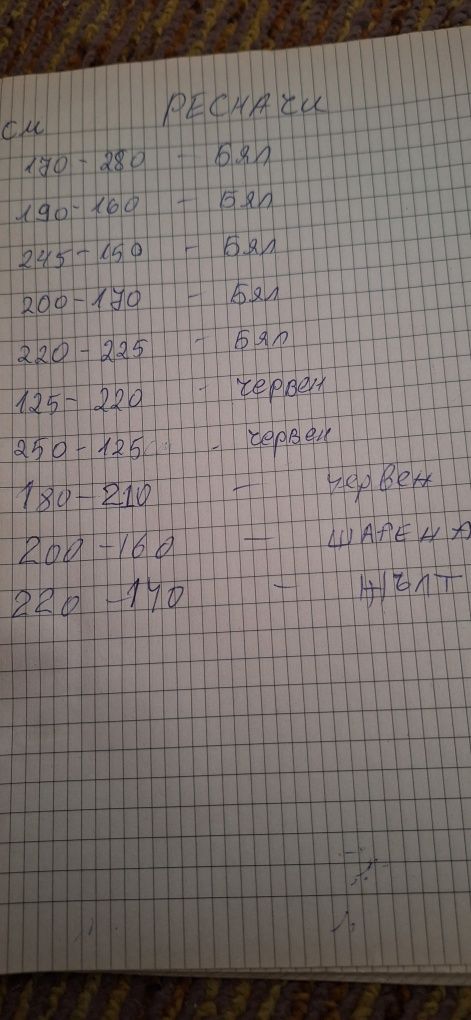 РЕСНАЧИ
см
170 - 280 - Бял
190 - 160 - Бял
245 - 150 - Бял
200 - 170 - Бял
220 - 225 - Бял
125 - 220 - червен
250 - 125 - червен
180 - 210 - червен
200 - 160 - ШАРЕНА
220 - 140 - жълт